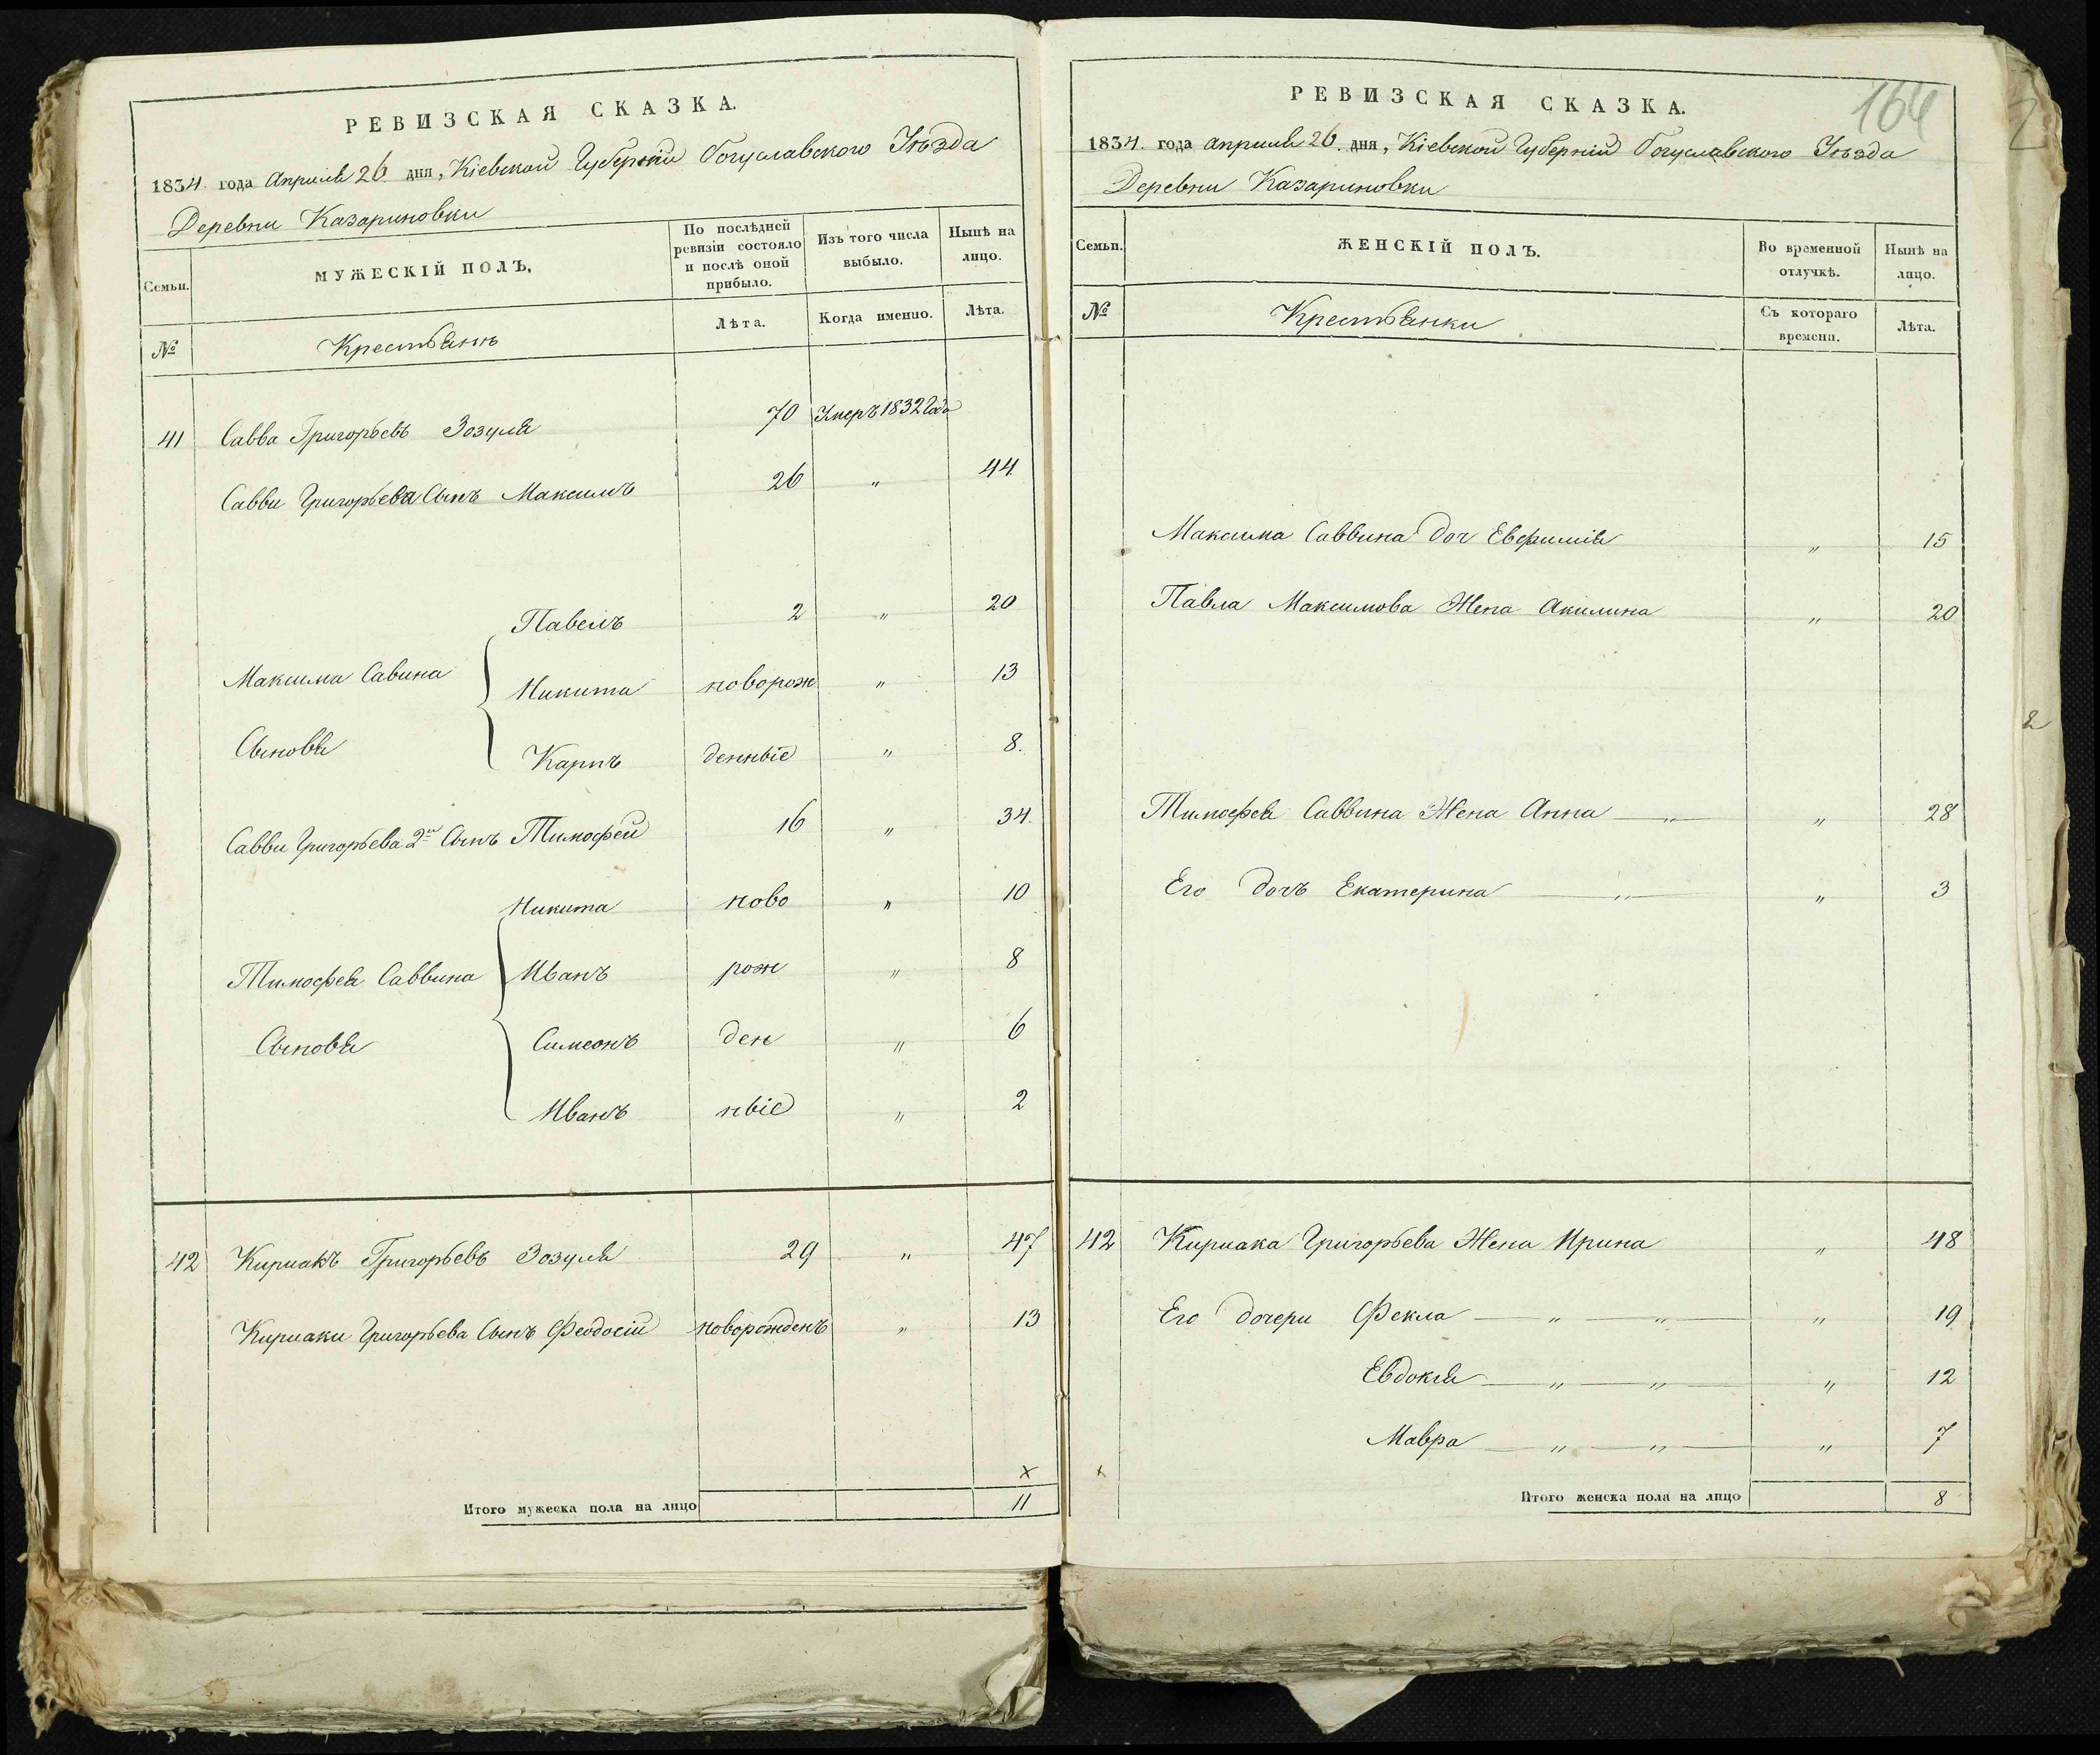 РЕВИЗСКАЯ СКАЗКА.
1834. года Апреля 26. дня, Кіевской Губерніи Богуславского Уѣзда
Деревни Казариновки
Семьи.
МУЖЕСКІЙ ПОЛЪ.
По послѣдней ревизіи состояло и послѣ оной прибыло.
Изъ того числа выбыло.
Нынѣ на лицо.
№
Крестьянъ
Лѣта.
Когда именно.
Лѣта.
41 Савва Григорьевъ Зозуля 70 Умеръ 1832 Года
Савви Григорьева Сынъ Максимъ 26 " 44
Павелъ 2 " 20
Максима Савина Никита новорож " 13
Сыновья Карпъ денныіе " 8.
Савви Григорьева 2й Сынъ Тимофей 16 " 34.
Никита ново " 10
Тимофея Саввина Иванъ рож " 8
Сыновья Симеонъ ден " 6
Иванъ ныіе " 2
42 Кириакъ Григорьевъ Зозуля 29 " 47
Кириаки Григорьева Сынъ Феодосій новорожденъ " 13
x
Итого мужеска пола на лицо 11
164
РЕВИЗСКАЯ СКАЗКА.
1834. года апреля 26. дня, Кіевской Губерніи Богуславского Уѣзда
Деревни Казариновки
Семьи.
ЖЕНСКІЙ ПОЛЪ.
Во временной отлучкѣ.
Нынѣ на лицо.
№
Крестьянки
Съ котораго времени.
Лѣта.
Максима Саввина доч Евфимія " 15
Павла Максимова Жена Акилина " 20
2
Тимофея Саввина Жена Анна " " 28
Его дочъ Екатерина " " 3
42 Кириака Григорьева Жена Ирина " 48
Его дочери Фекла " " " 19
Евдокія " " " 12
Мавра " " " 7
x
Итого женска пола на лицо 8